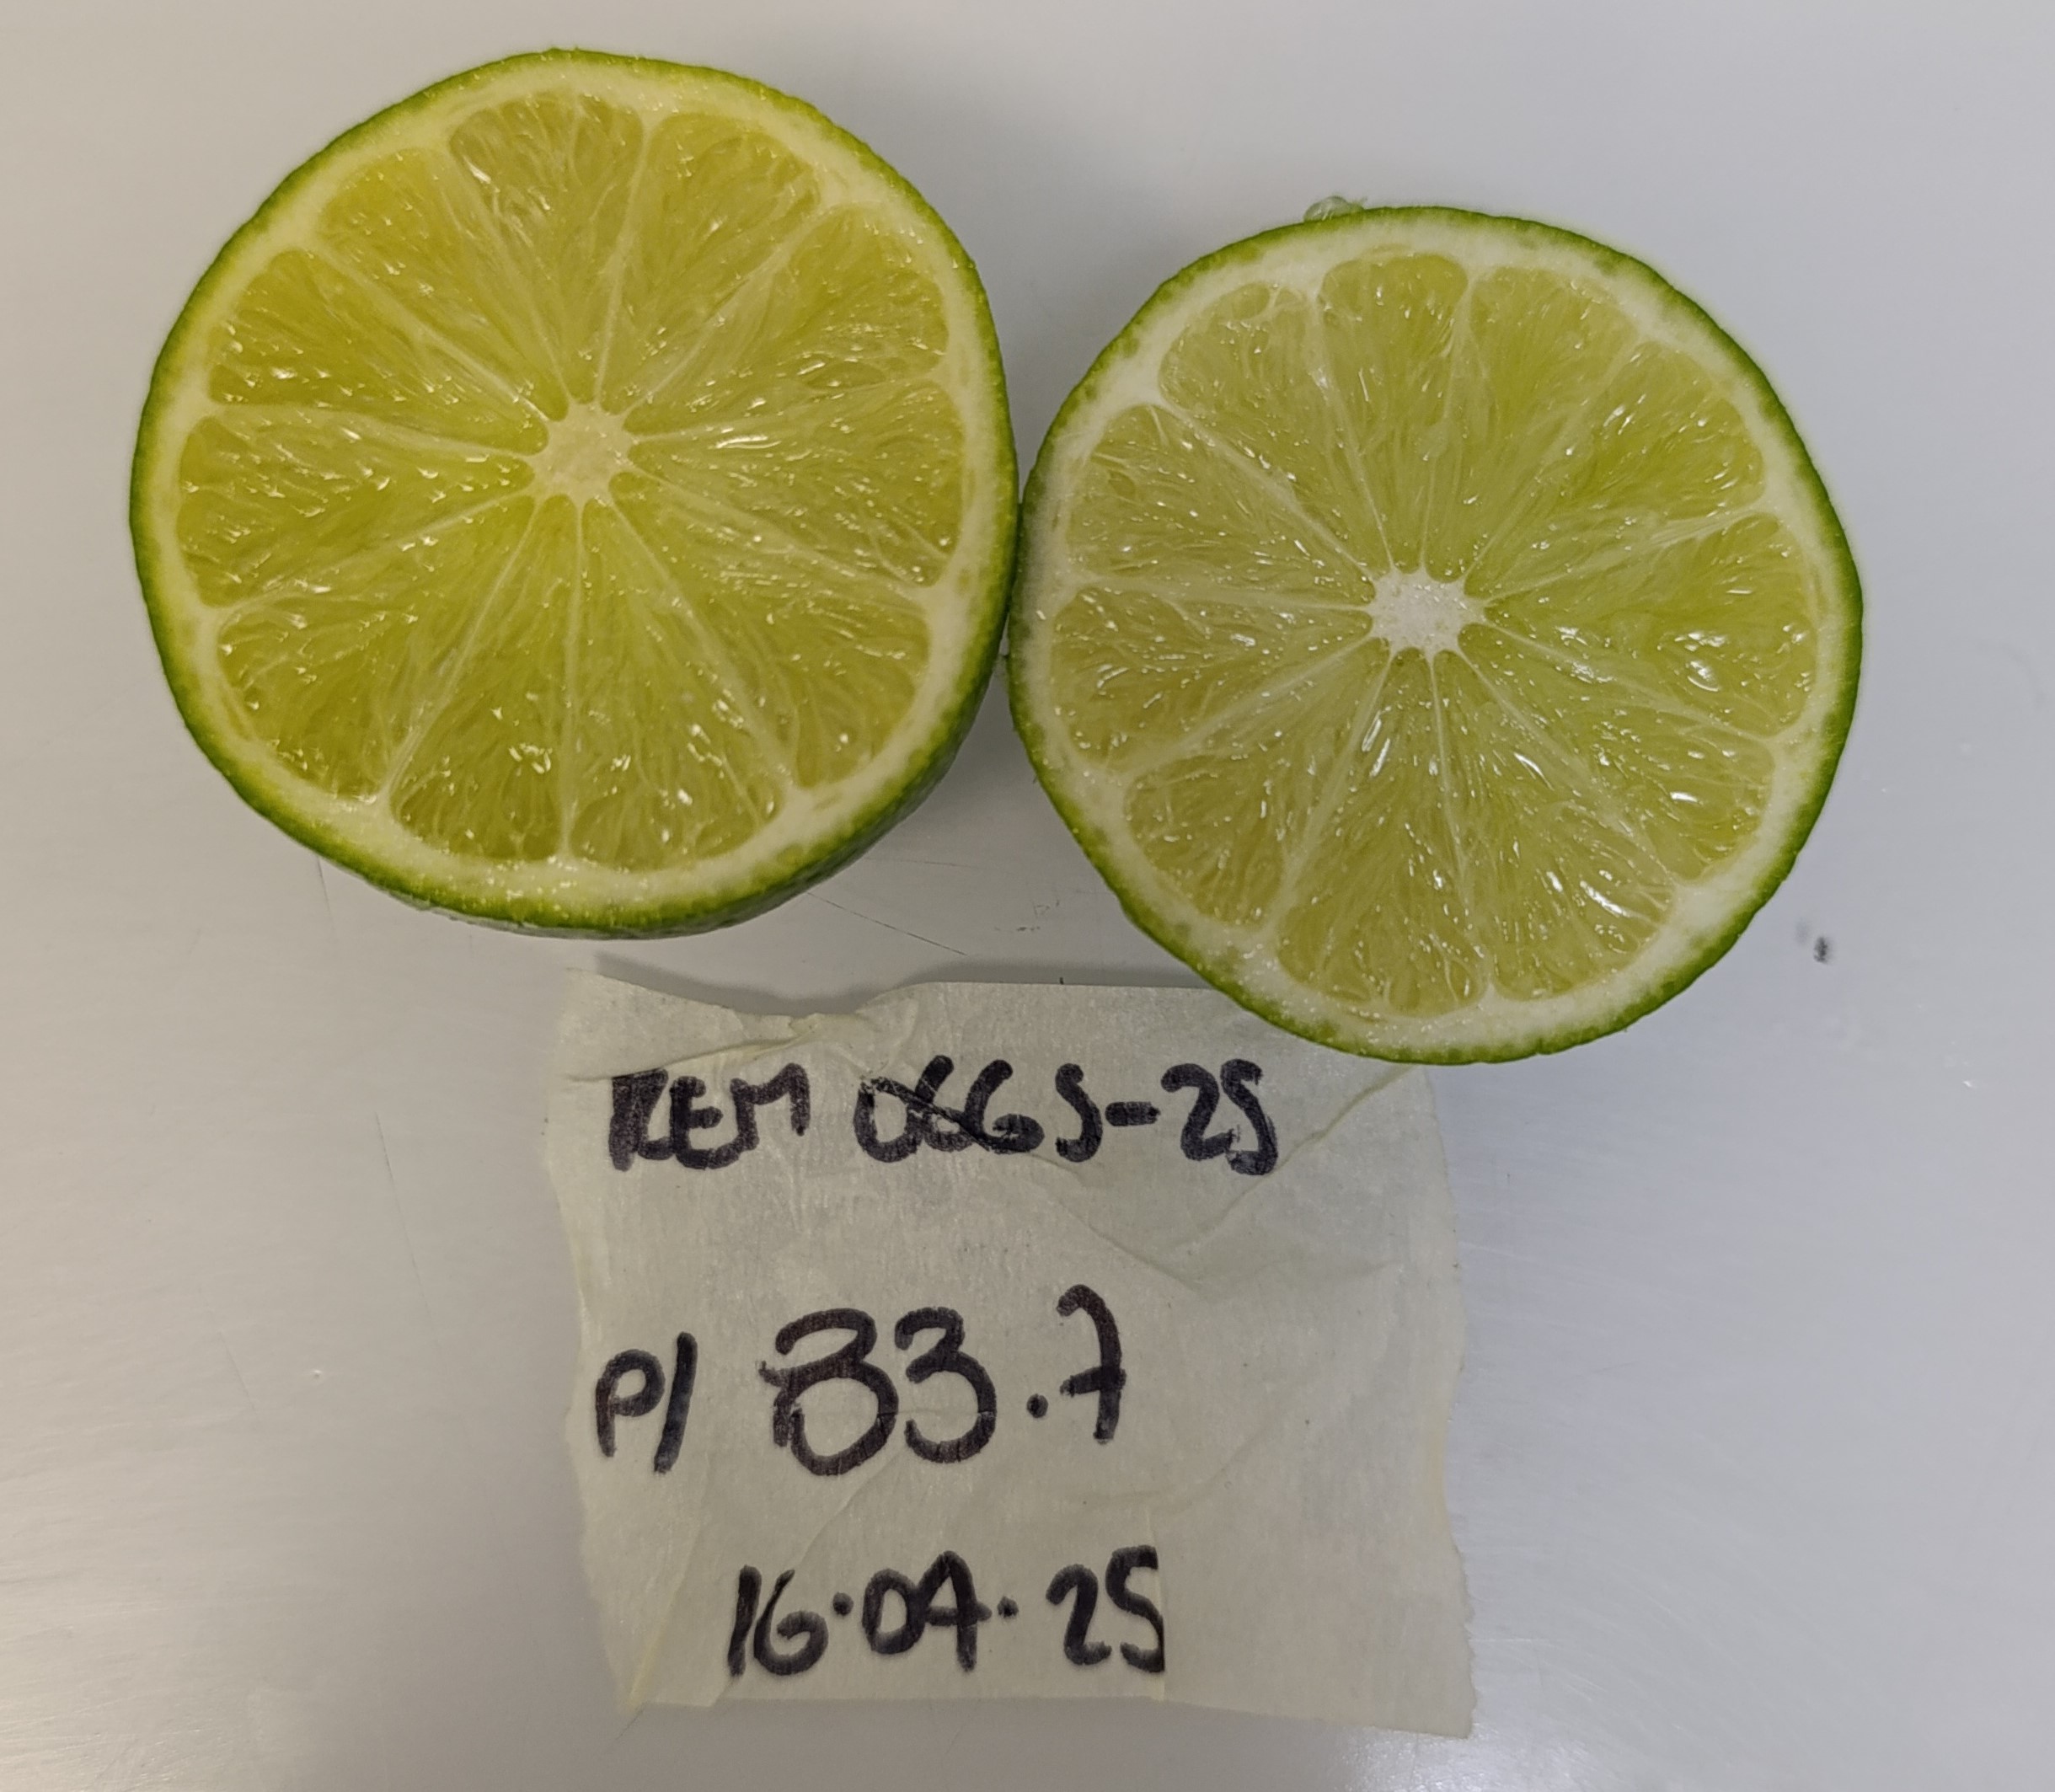 REM 0665-25
P/ 83.7
16.04.25